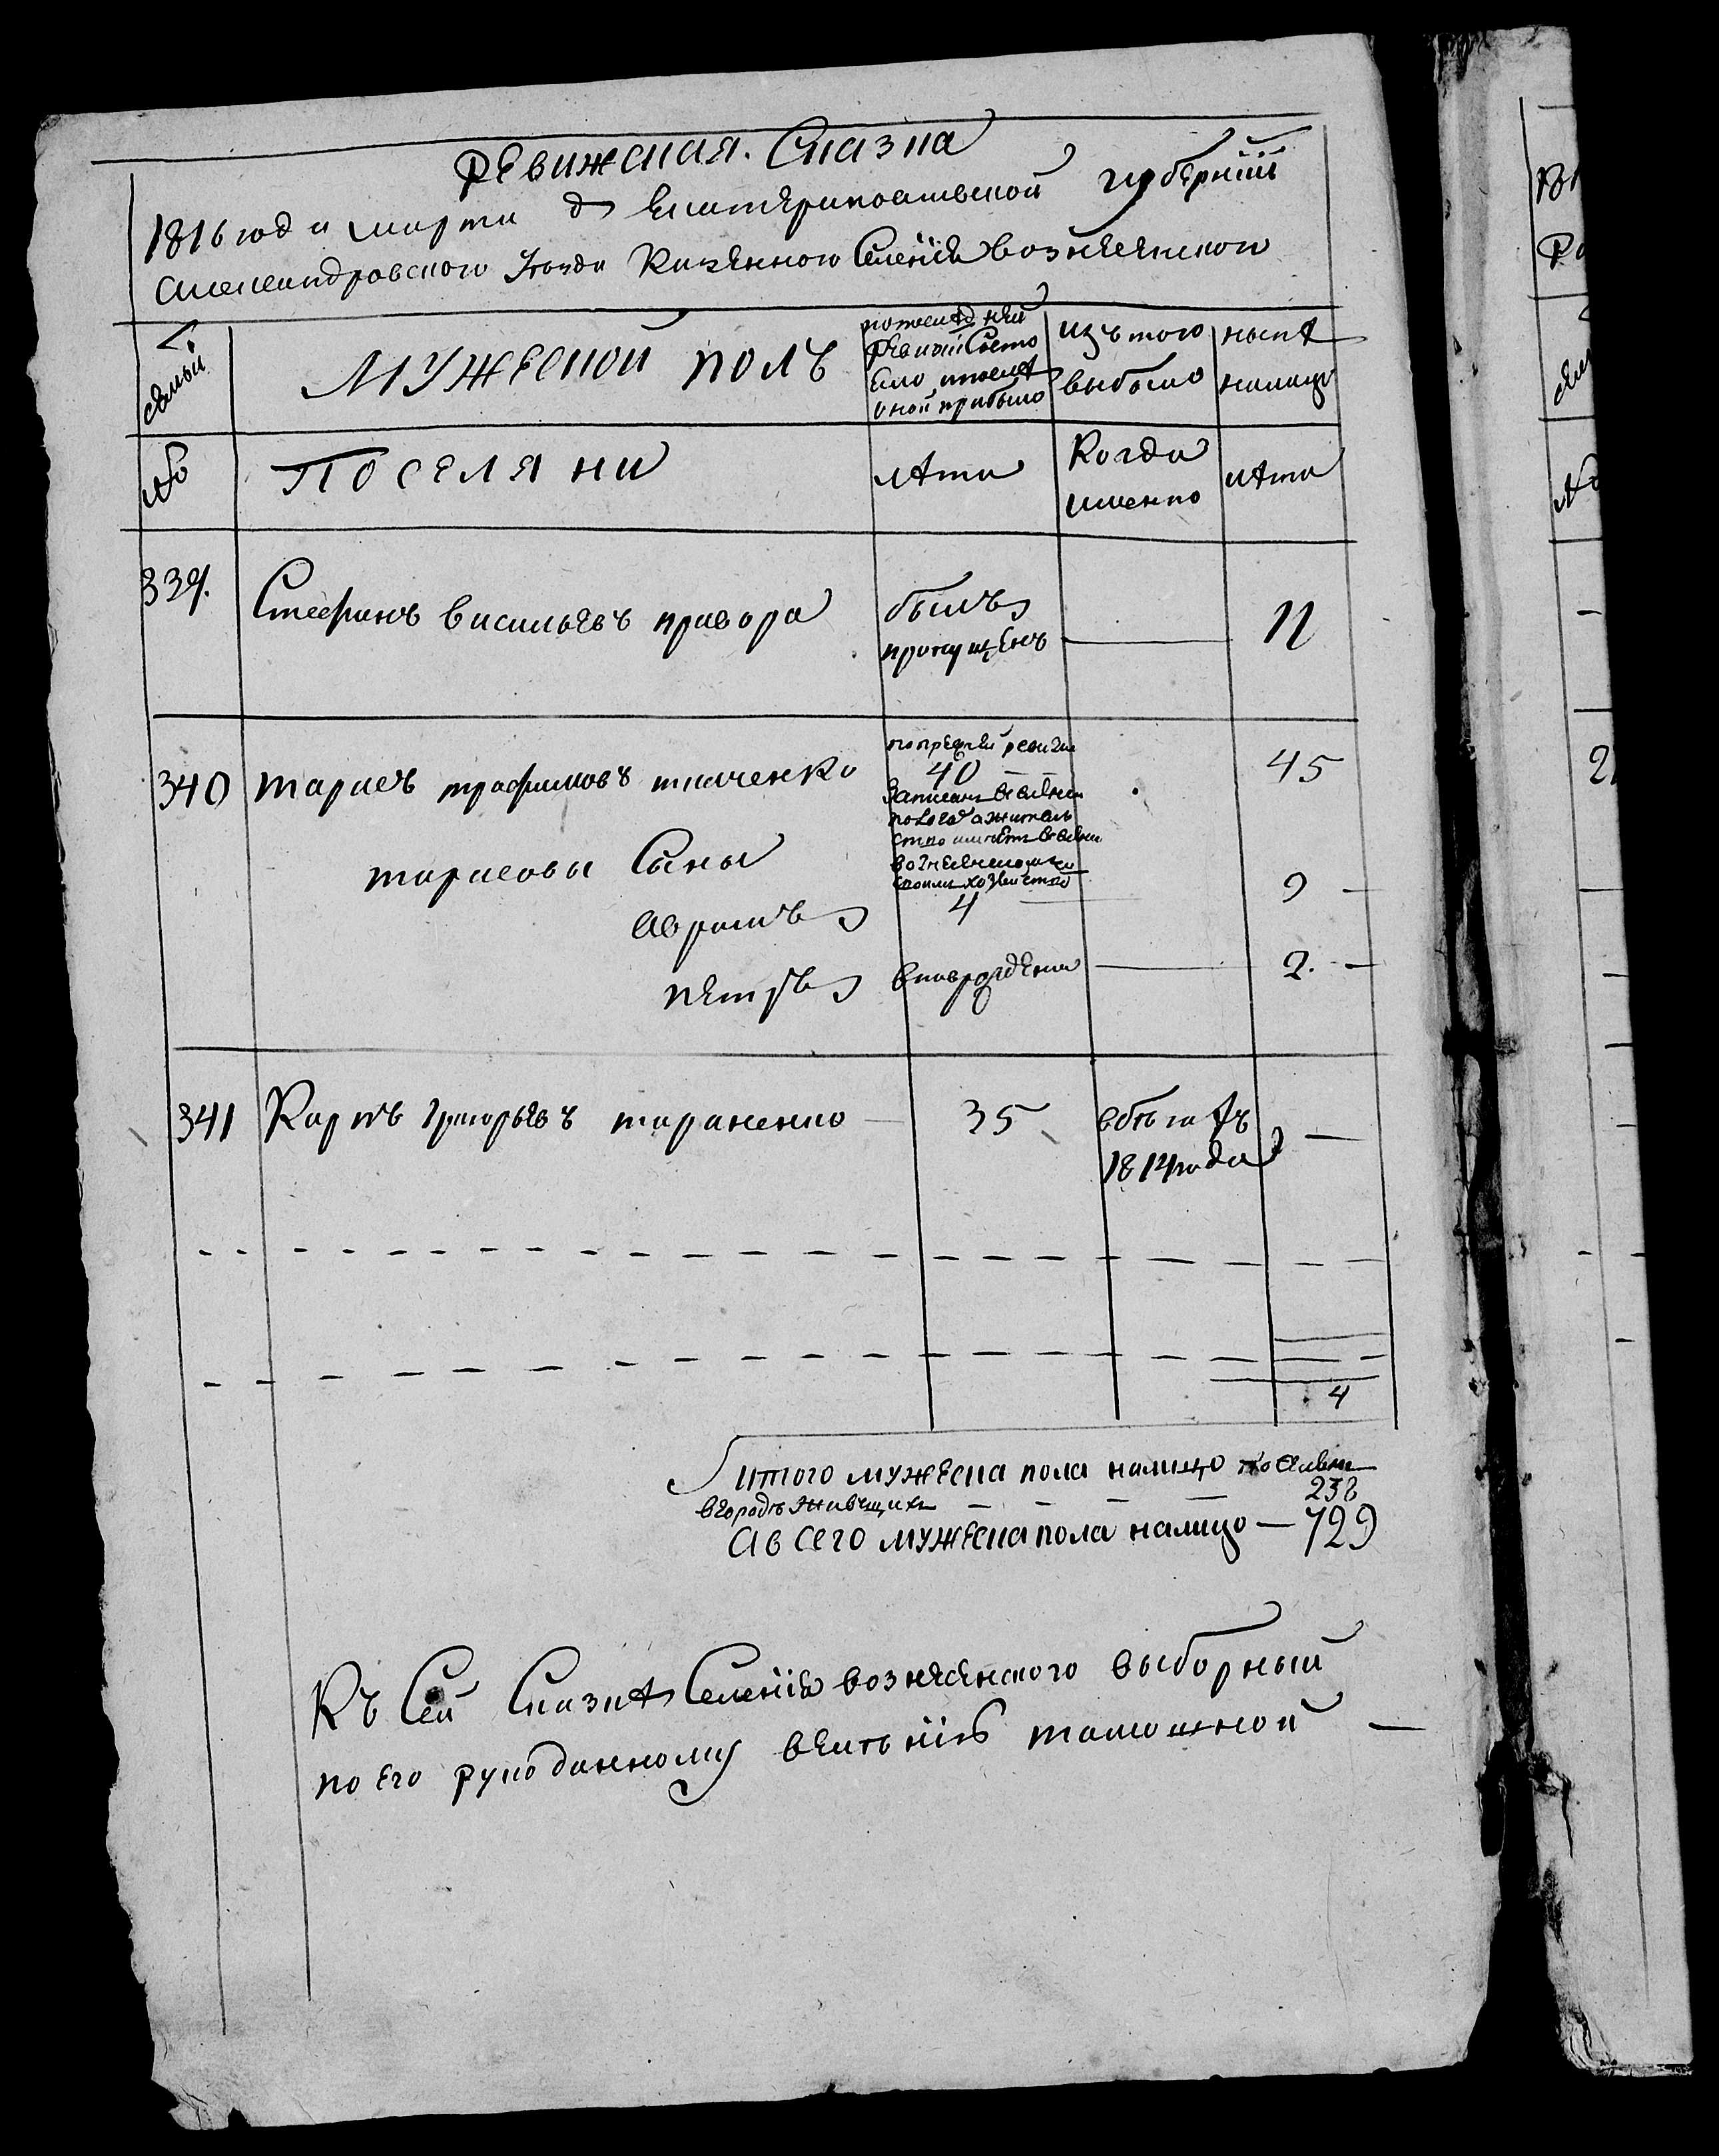 Ревижская. Сказка
1816 года марта д Екатеринославской губернiи
Александровского Уезда Казенного Селенiя вознесенского
семьи
Мужеской полъ
попоследней
ревизiи Состо
яло ипосле
оной прибыло
изътого
выбыло
ныне
налицо
№
Поселяни
лѣта
Когда
именно
лѣта
339.
Стефанъ васильевъ правора
былъ
пропущенъ
11
340
тарасъ трофимовъ ткаченко
попрежней ревизи
40
45
тарасовы Сыны
аврамъ
4
9
петръ
вновьрожденъ
2.
341
Карпъ григорьевъ тараненко
35
вбегахъ
1814года
4
итого мужеска пола налицо
вгородѣ живущихъ
238
Авсего мужескапола налицо — 729
Къ Сей Сказкѣ Селенiя вознесенского выборный
по его рукоданному веленiю тамошной